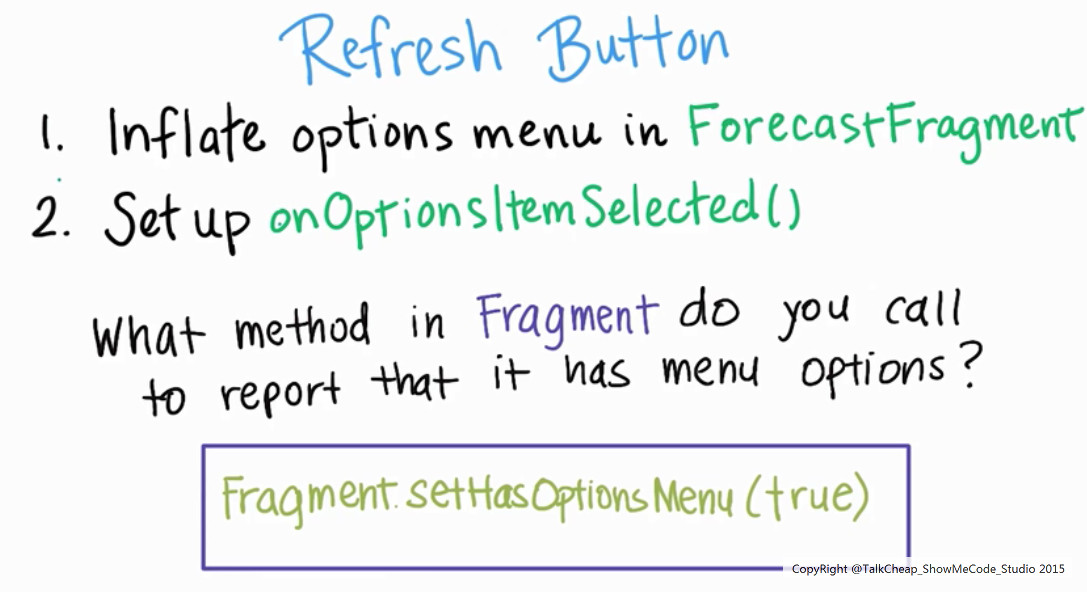 Refresh Button
1. Inflate options menu in ForecastFragment
2. Set up onOptionsItemSelected()
What method in Fragment do you call
to report that it has menu options?
Fragment.setHasOptionsMenu(true)
CopyRight @TalkCheap_ShowMeCode_Studio 2015